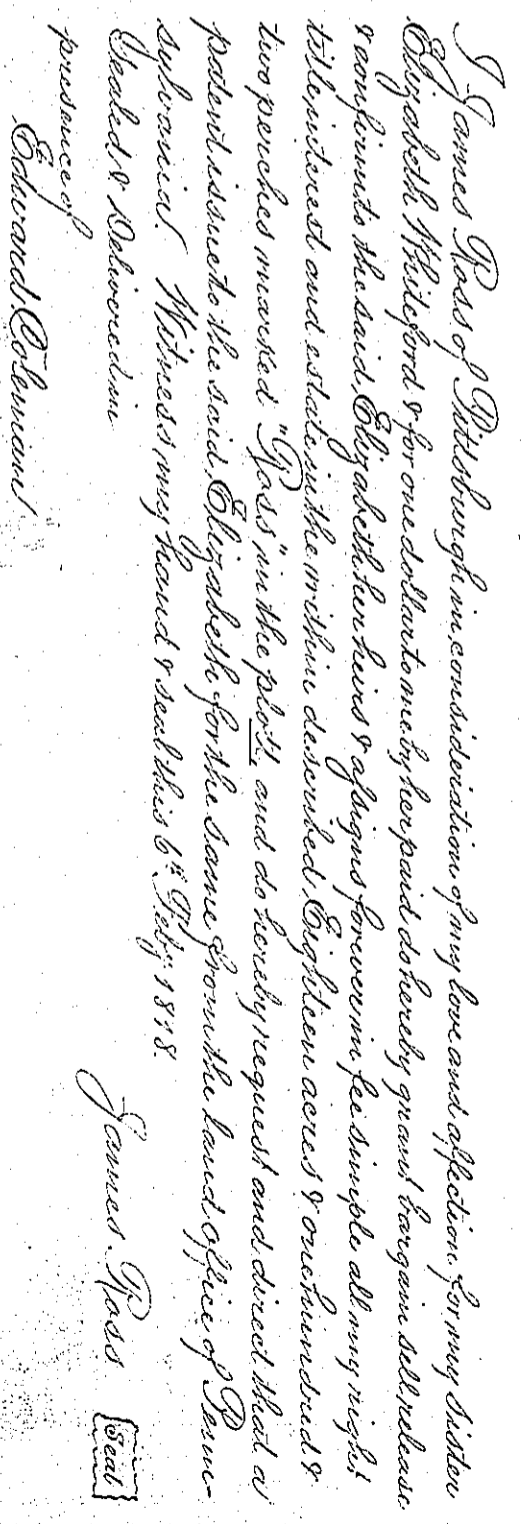 I James Ross of Pittsburgh in consideration of my love and affection for my sister
Elizabeth Whiteford & for one dollar to me by her paid do hereby grant bargain sell release
& confirm to the said Elizabeth her heirs & assigns forever in fee simple all my right
title interest and estate in the within described Eighteen acres & one hundred &
two perches marked "Ross" in the plott, and do hereby request and direct that a
patent issue to the said Elizabeth for the same from the land office of Penn-
sylvania. Witness my hand & seal this 6th Feby 1818.
Sealed & Delivered in
presence of
James Ross [Seal]
Edward Coleman